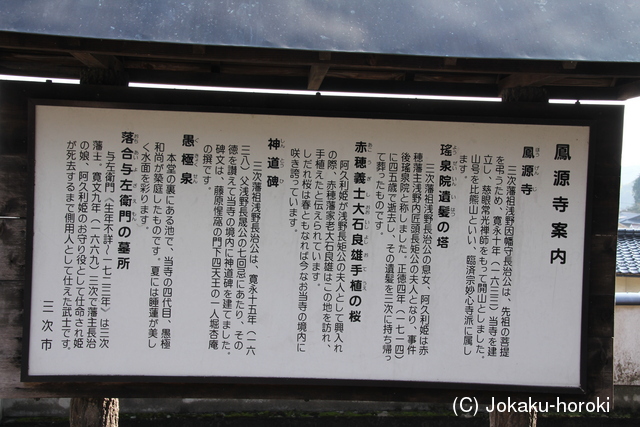 鳳源寺案内
鳳源寺
ほうげんじ
三次藩祖浅野因幡守長治公は、先祖の菩提
を弔うため、寛永十年(一六三三)当寺を建
立し、慈眼常光禅師をもって開山としました。
山号を比熊山といい、臨済宗妙心寺派に属し
ます。
瑤泉院遺髪の塔
三次藩祖浅野長治公の息女、阿久利姫は赤
穂藩主浅野内匠頭長矩公の夫人となり、事件
後瑤泉院と称しました。正徳四年(一七一四)
に四五歳で逝去し、その遺髪を三次に持ち帰っ
て葬ったものです。
赤穂義士大石良雄手植の桜
阿久利姫が浅野長矩公の夫人として輿入れ
の際、赤穂藩家老大石良雄はこの地を訪れ、
手植えたと伝えられています。
しだれ桜は春ともなれば今なお当寺の境内に
咲き誇っています。
神道碑
しんとうひ
三次藩祖浅野長治公は、寛永十五年(一六
三八)父浅野長晟公の七回忌にあたり、その
徳を讃えて当寺の境内に神道碑を建てました。
碑文は、藤原惺窩の門下四天王の一人堀杏庵
の撰です。
愚極泉
本堂の裏にある池で、当寺の四代目、愚極
和尚が築庭したものです。夏には睡蓮が美し
く水面を彩ります。
落合与左衛門の墓所
与左衛門(生年不詳〜一七三三年)は三次
藩士、寛文九年(一六六九)三次で藩主長治
の娘、阿久利姫のお守り役として仕命され姫
が死去するまで側用人として仕えた武士です。
三次市
(C) Jokaku-horoki